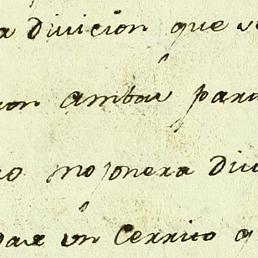 a division que se
on ambas para
o mojonera divi
dar un Cerrito a